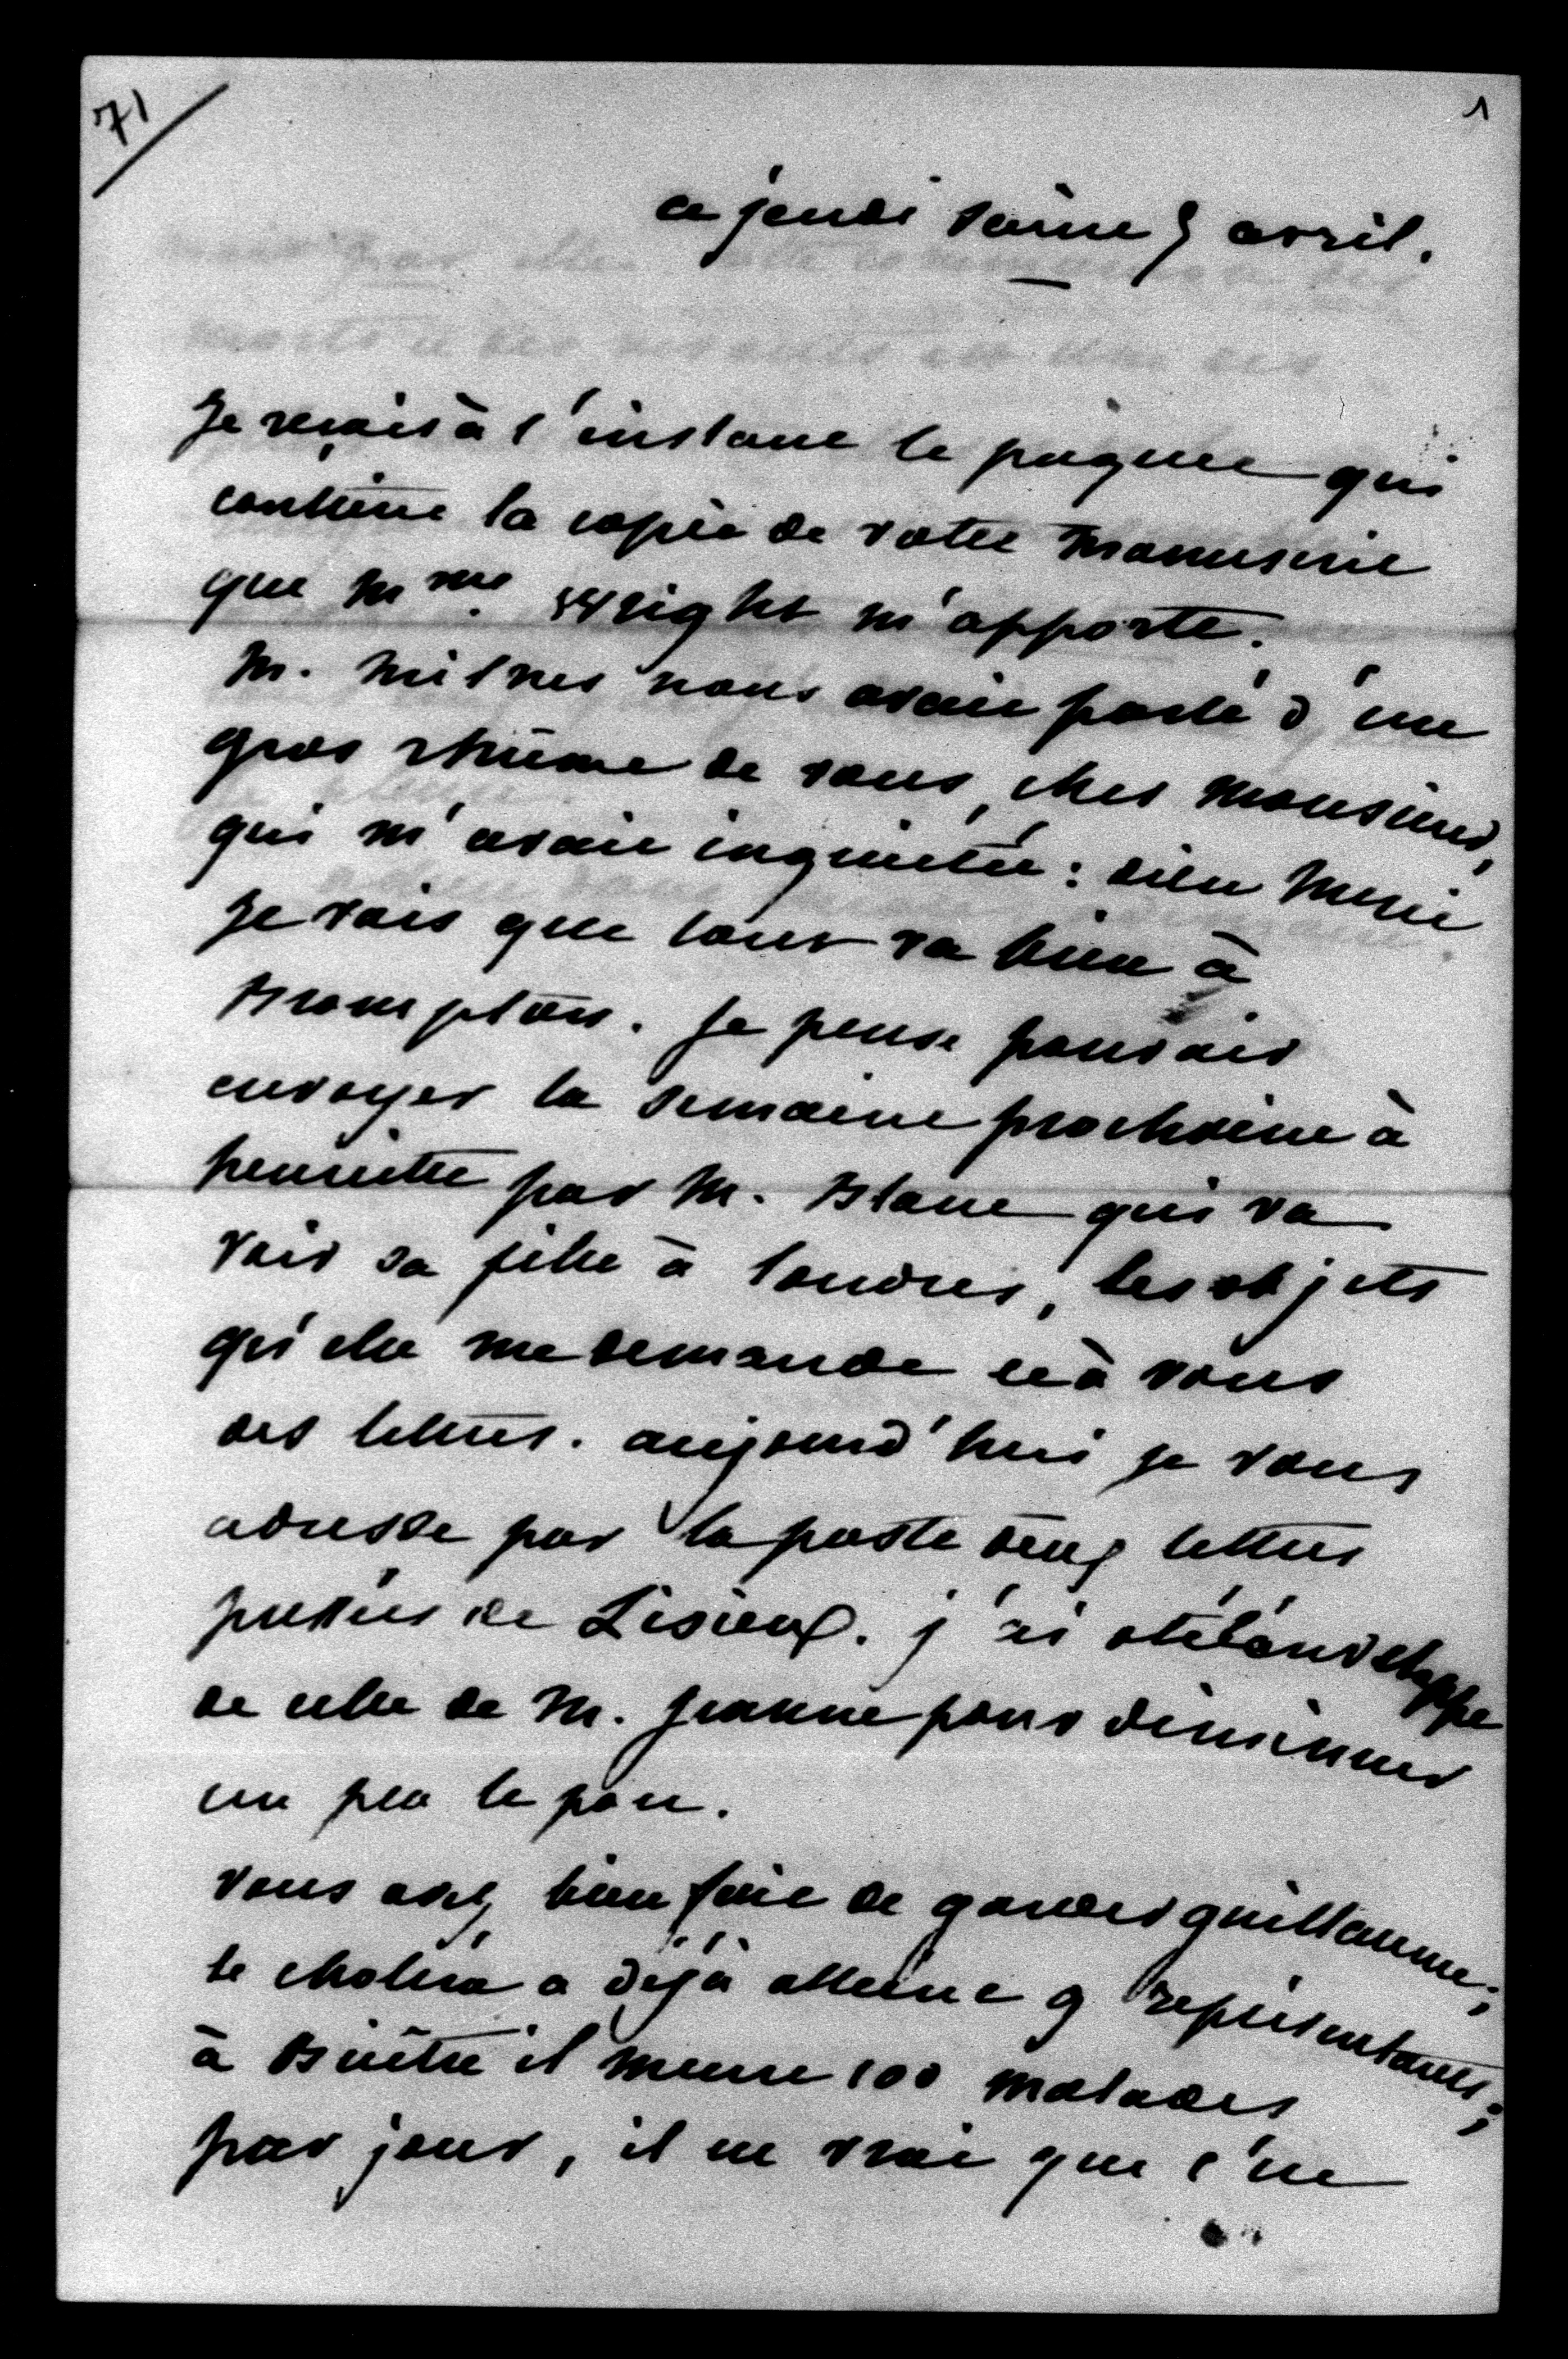 71
1
ce jeudi saint 5 avril.
Je reçois à l'instant le paquet qui
contient la copie de votre manuscrit
que Mme Wright m'apporte.
M. Milnes nous avait parlé d'un
gros rhûme de vous, cher monsieur,
qui m'avait inquiétée : dieu merci
je vois que tout va bien à
Brompton. Je pense pouvoir
envoyer la semaine prochaine à
henriette par M. Blanc qui va
voir sa fille à londres, les objets
qu'elle me demande et à vous
des lettres. aujourd'hui je vous
adresse par la poste deux lettres
pressées de Lisieux. j'ai oté l'enveloppe
de celle de M. Jeanne pour diminuer
un peu le port.
vous avez bien fait de garder guillaume ;
le choléra a déjà atteint 9 représentants ;
à Bicêtre il meurt 100 malades
par jour, il est vrai que c'est